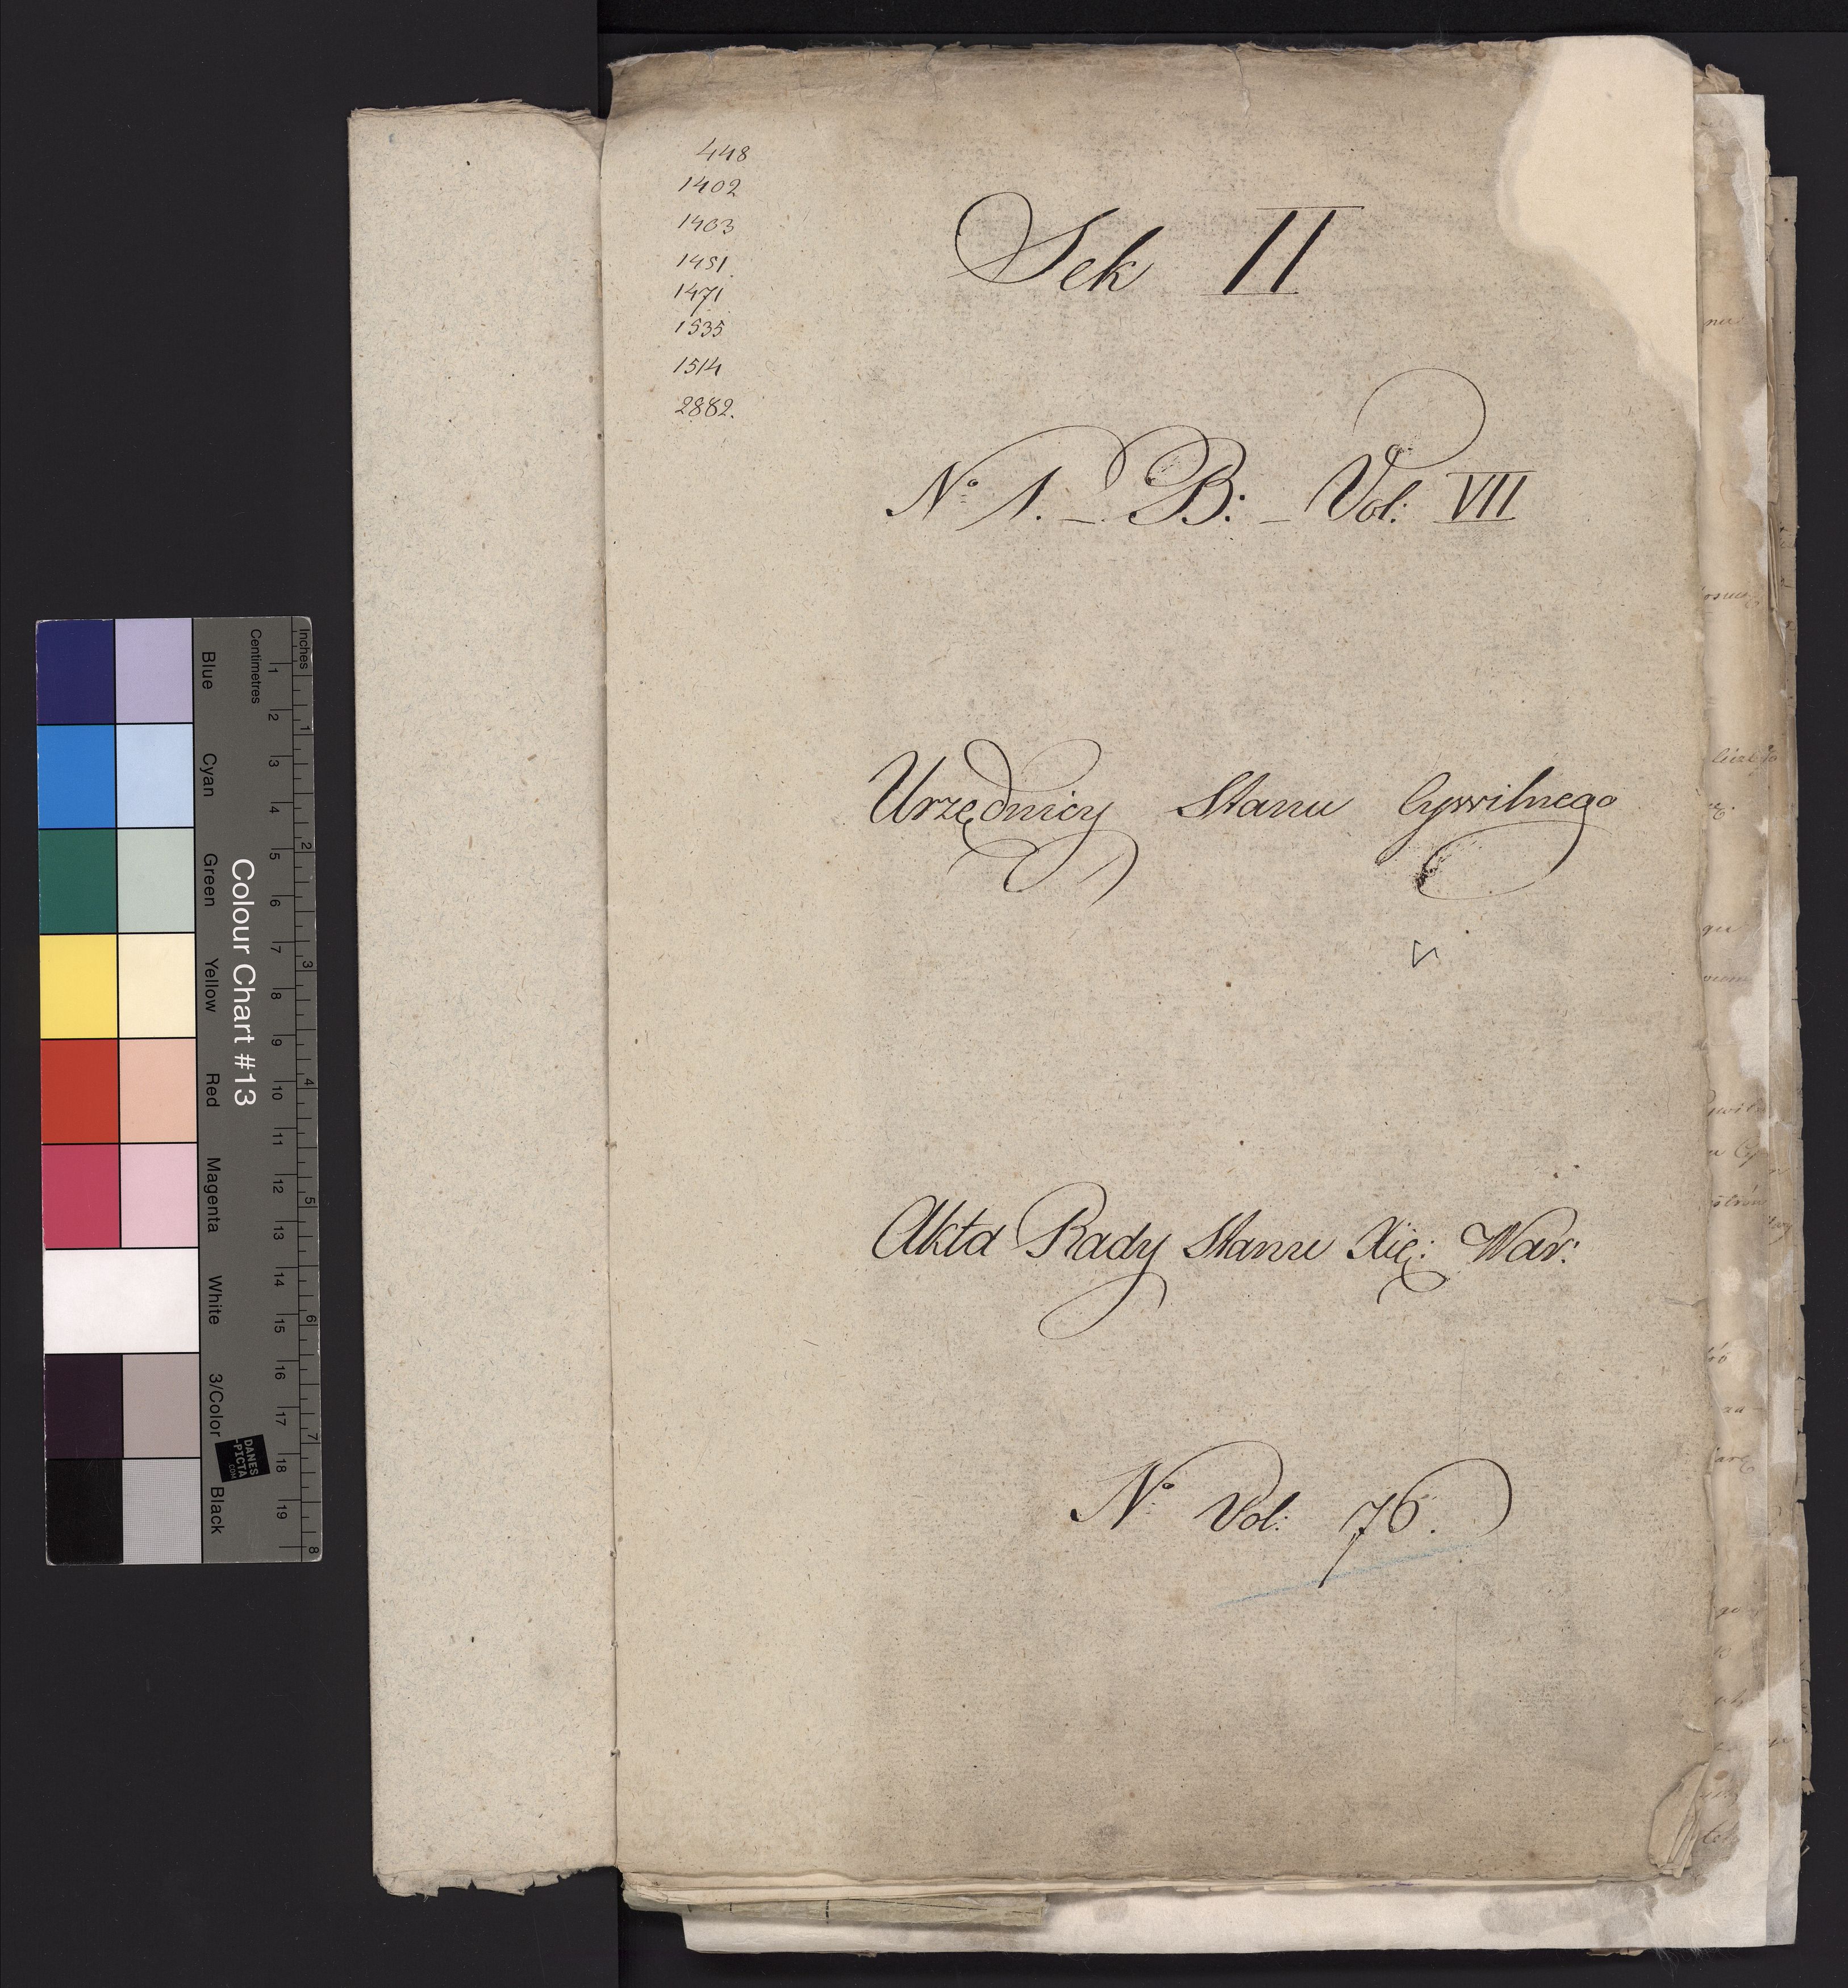 448
1402
1403
1451.
1471
1535
1514
2882.
Sek II
No 1. _ B: _ Vol: VII
Urzędnicy Stanu Cywilnego
Akta Rady Stanu Xię: War:
No Vol: 76.
Colour Chart #13
Blue
Cyan
Green
Yellow
Red
Magenta
White
3/Color
Black
Centimetres
1 2 3 4 5 6 7 8 9 10 11 12 13 14 15 16 17 18 19
Inches
1 2 3 4 5 6 7 8
DANES
-PICTA
.COM